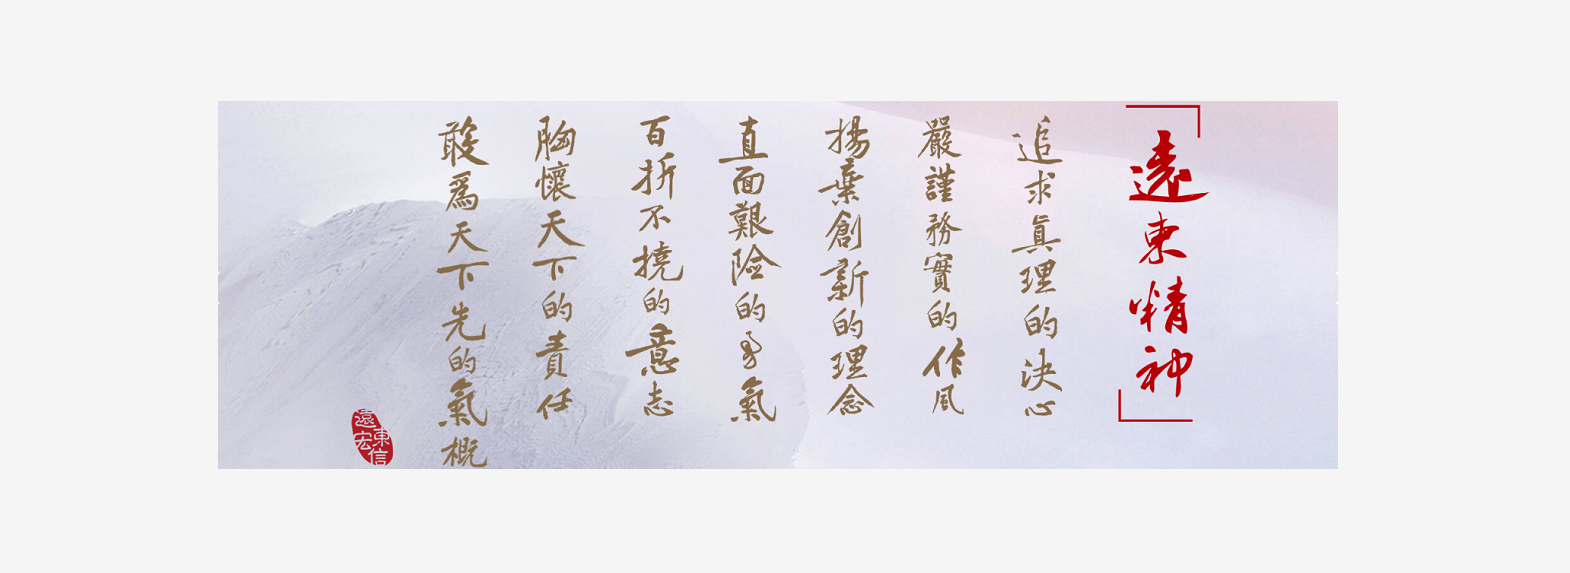 遠東精神
追求真理的決心
嚴謹務實的作風
揚棄創新的理念
直面艱險的勇氣
百折不撓的意志
胸懷天下的責任
敢爲天下先的氣概
遠東宏信